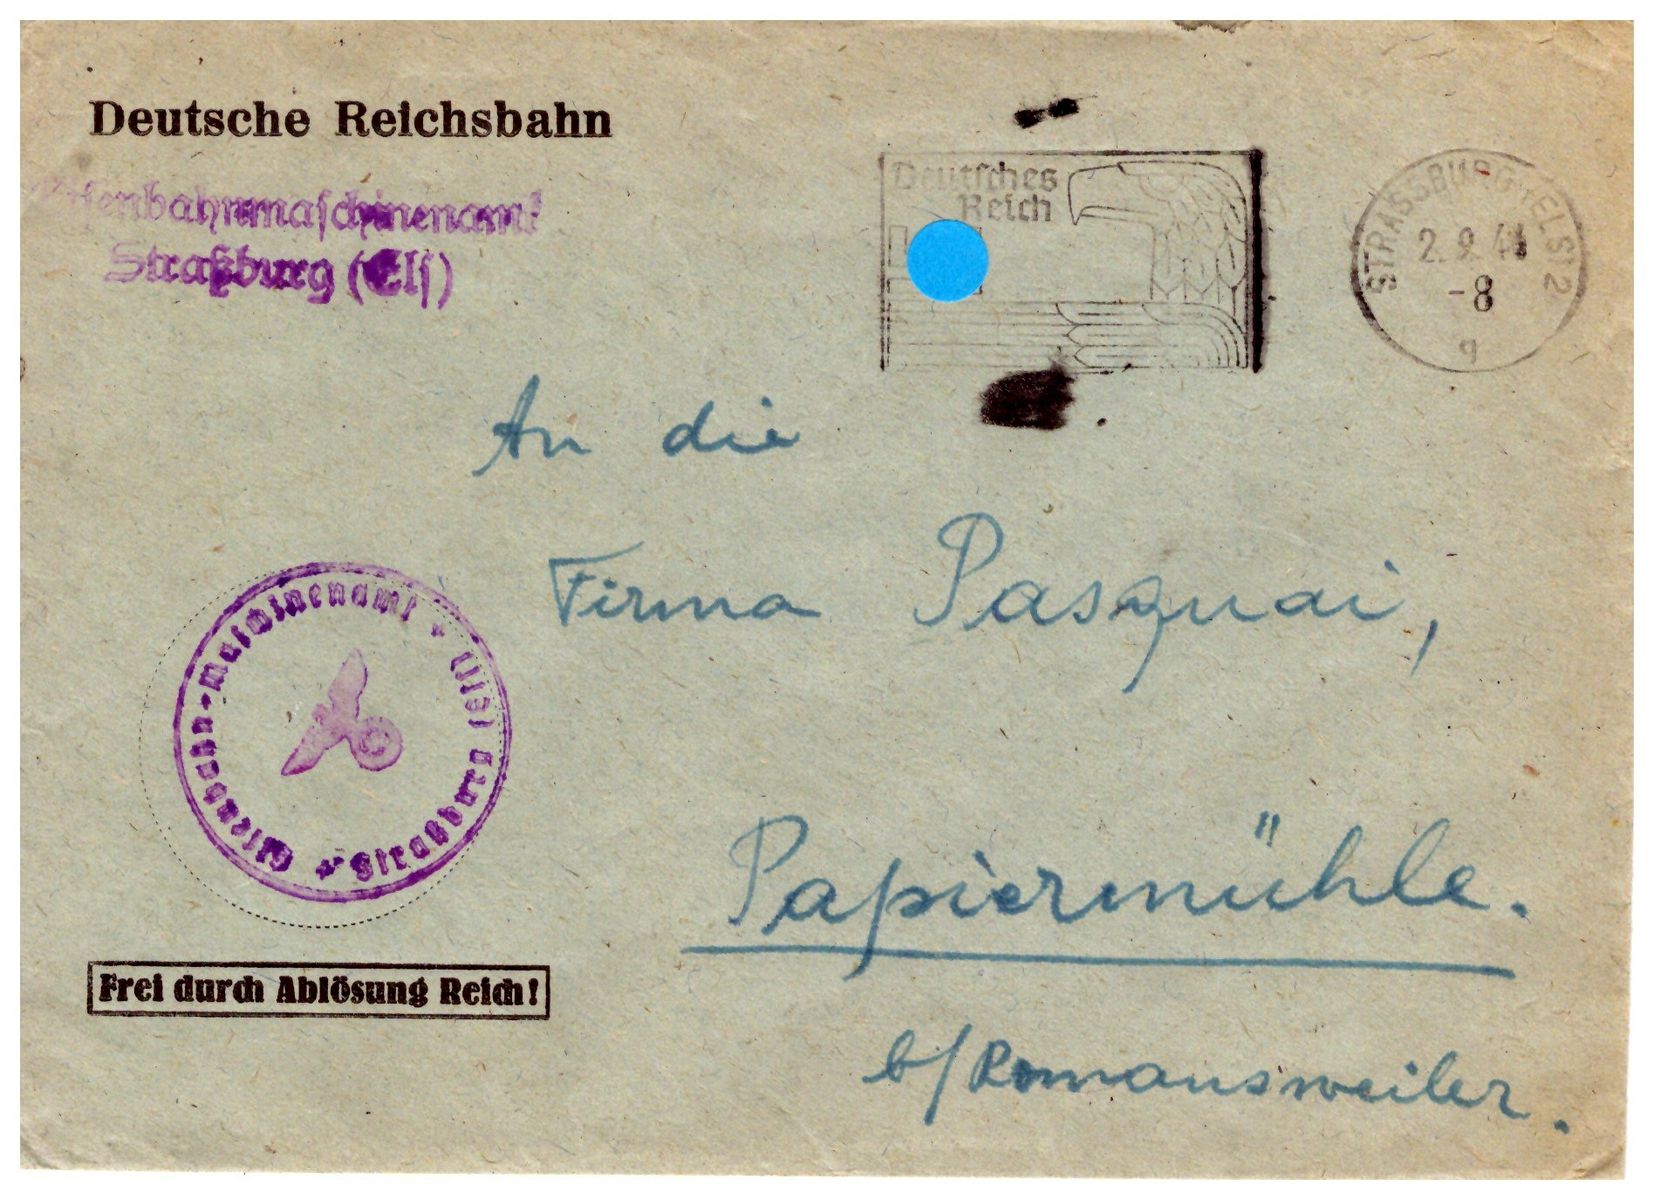 Deutsche Reichsbahn
Eisenbahnmaschinenamt
Straßburg (Els)
Deutsches
Reich
STRASSBURG (ELS) 2
-8
g
An die
Firma Pasquai,
Papiermühle.
b/Romansweiler.
Eisenbahn-Maschinenamt * Straßburg (Els) *
Frei durch Ablösung Reich!